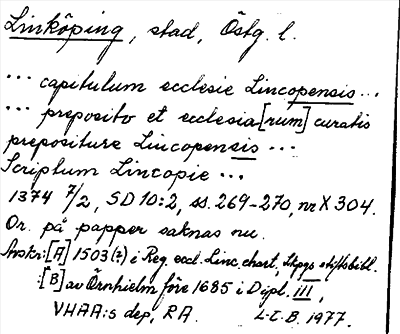 Linköping, stad, Östg. l.
... capitulum ecclesie Lincopensis ...
... preposito et ecclesia[rum] curatis
prepositure Lincopensis ...
Scriptum Lincopie ...
1374 7/2, SD 10:2, ss. 269-270, nr X 304.
Or. på papper saknas nu.
Avskr: [A] 1503(?) i Reg. eccl. Linc. chart., Lkpgs stiftsbibl.
:[B] av Örnhielm före 1685 i Dipl. III,
VHAA:s dep., RA. L-E. B. 1977.